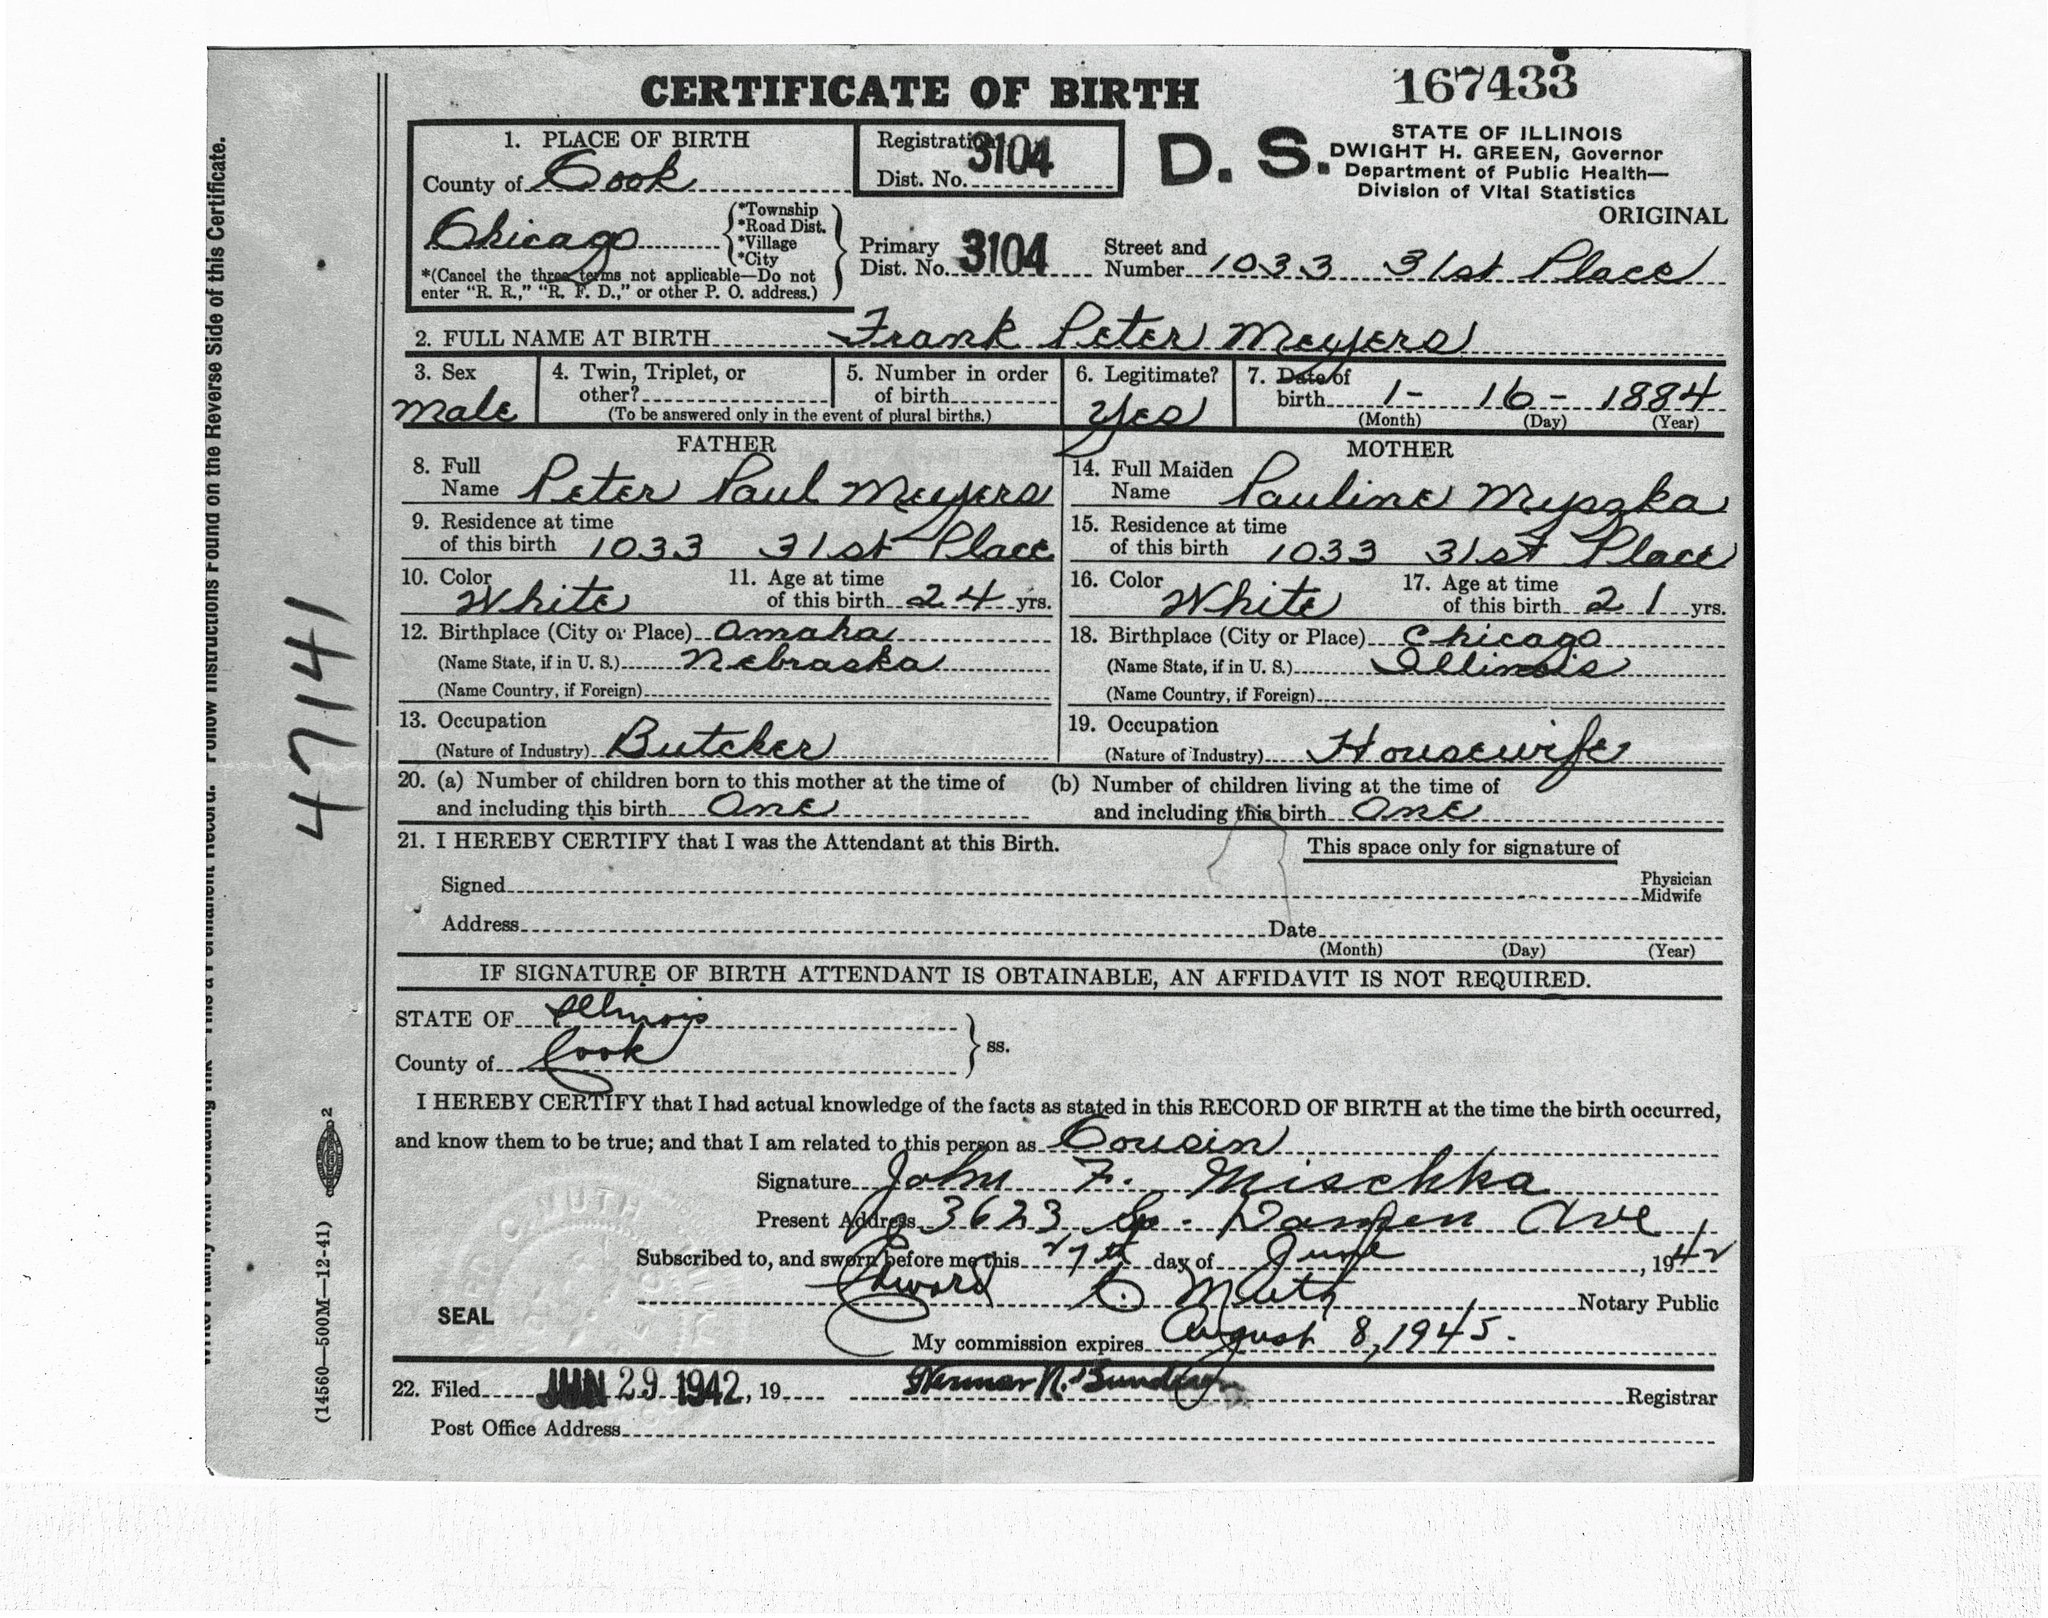 CERTIFICATE OF BIRTH
167433
1. PLACE OF BIRTH
County of Cook
Registration 3104
Dist. No.
D. S.
STATE OF ILLINOIS
DWIGHT H. GREEN, Governor
Department of Public Health—
Division of Vital Statistics
ORIGINAL
Chicago
*Township
*Road Dist.
*Village
*City
*(Cancel the three terms not applicable—Do not
enter "R. R.," "R. F. D.," or other P. O. address.)
Primary
Dist. No. 3104
Street and
Number 1033 31st Place
2. FULL NAME AT BIRTH Frank Peter Meyers
3. Sex
Male
4. Twin, Triplet, or
other?
5. Number in order
of birth
(To be answered only in the event of plural births.)
6. Legitimate?
Yes
7. Date of
birth 1- 16- 1884
(Month) (Day) (Year)
FATHER
8. Full
Name Peter Paul Meyers
9. Residence at time
of this birth 1033 31st Place
10. Color
White
11. Age at time
of this birth 24 yrs.
12. Birthplace (City or Place) Omaha
(Name State, if in U. S.) Nebraska
(Name Country, if Foreign)
13. Occupation
(Nature of Industry) Butcher
MOTHER
14. Full Maiden
Name Pauline Myszka
15. Residence at time
of this birth 1033 31st Place
16. Color
White
17. Age at time
of this birth 21 yrs.
18. Birthplace (City or Place) Chicago
(Name State, if in U. S.) Illinois
(Name Country, if Foreign)
19. Occupation
(Nature of Industry) Housewife
20. (a) Number of children born to this mother at the time of
and including this birth One
(b) Number of children living at the time of
and including this birth One
21. I HEREBY CERTIFY that I was the Attendant at this Birth.
This space only for signature of
Signed
Physician
Midwife
Address Date
(Month) (Day) (Year)
IF SIGNATURE OF BIRTH ATTENDANT IS OBTAINABLE, AN AFFIDAVIT IS NOT REQUIRED.
STATE OF Illinois
County of Cook
ss.
I HEREBY CERTIFY that I had actual knowledge of the facts as stated in this RECORD OF BIRTH at the time the birth occurred,
and know them to be true; and that I am related to this person as Cousin
Signature John F. Mischka
Present Address 3623 So. Damen Ave
Subscribed to, and sworn before me this 27th day of June, 1942
Edward Notary Public
SEAL
My commission expires August 8, 1945.
22. Filed JUN 29 1942, 19 Herman N. Bundesen Registrar
Post Office Address
47141
Follow Instructions Found on the Reverse Side of this Certificate.
(14560—500M—12-41) 2